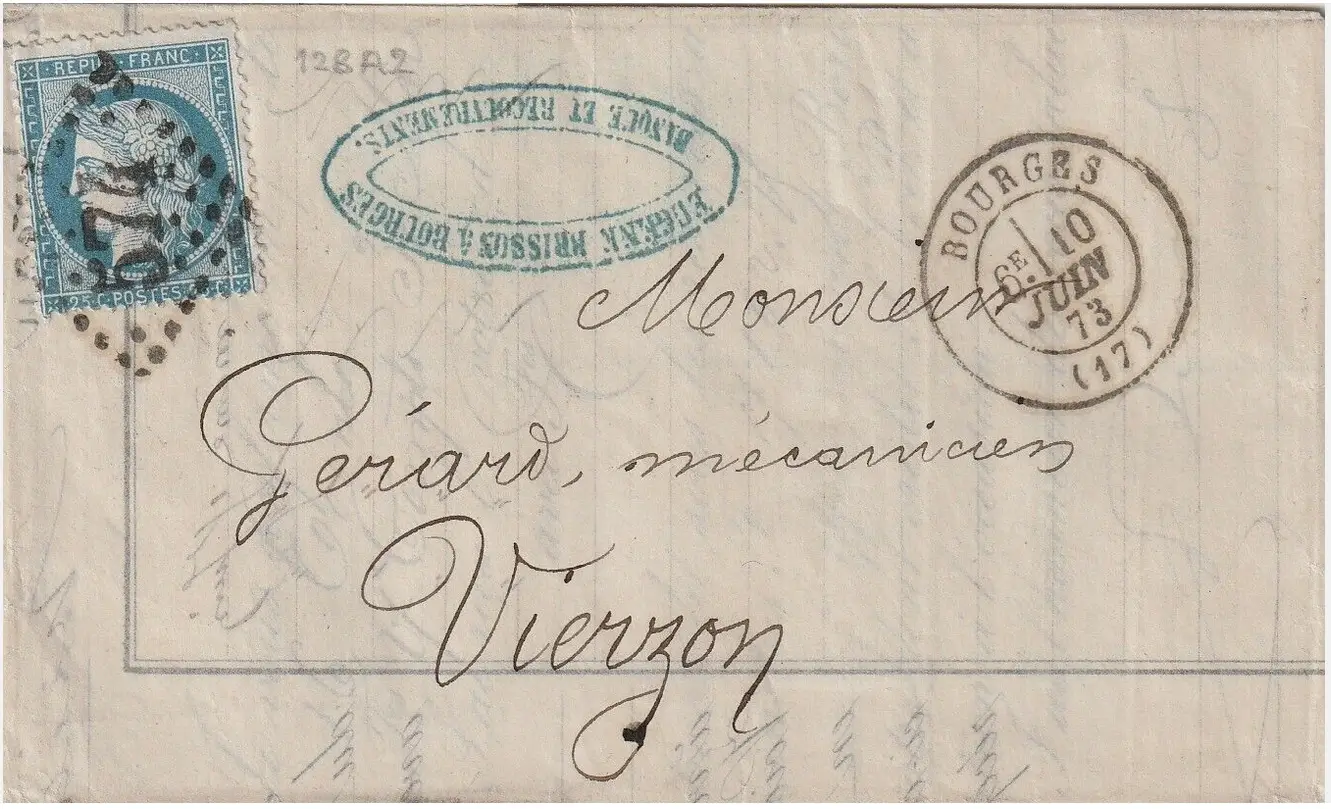 REPUB. FRANC.
574
25 C. POSTES 25 C.
12BA2
BANQUE ET RECOUVREMENTS.
EUGÈNE BRISSON À BOURGES
BOURGES
6E 10
JUIN
73
(17)
Monsieur
Gérard, mécanicien
Vierzon